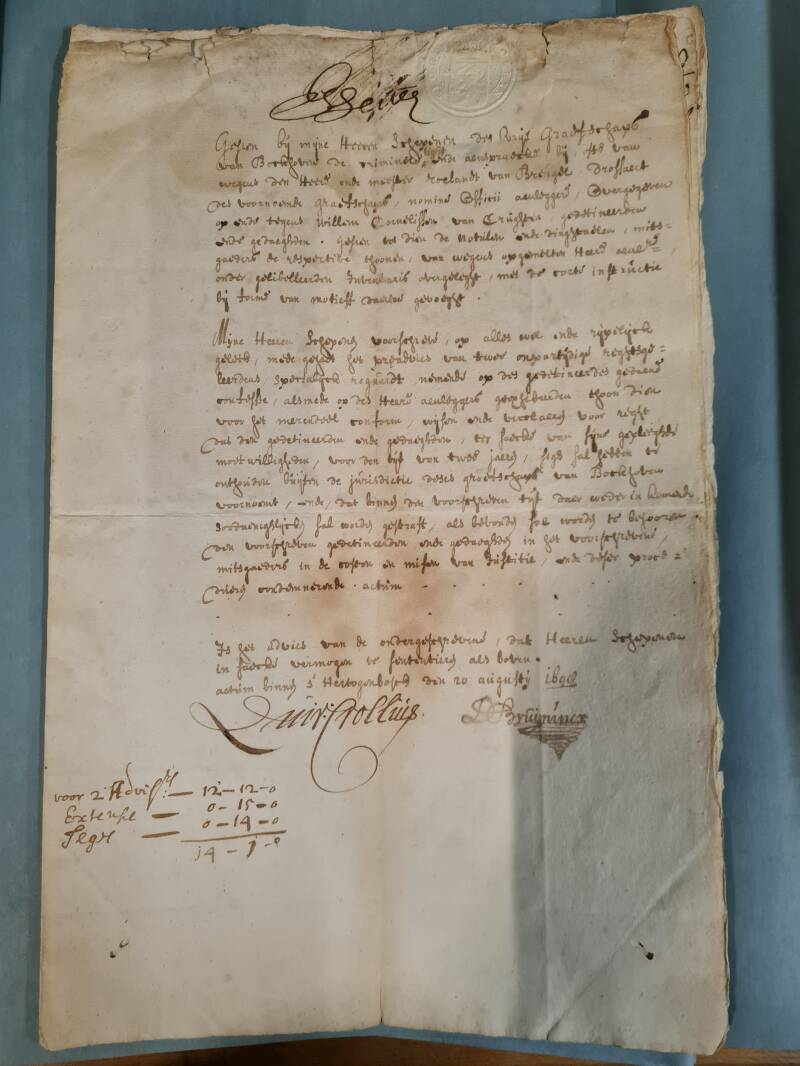 Gesien bij mijne Heeren Schepenen des Vrijs Graefschaps
van Bockhoven de criminele ende aenspraecke bij, ofte van
wegens den Heer ende meester Roelandt van Bregel, Drossaert
des voornoemde Graefschaps, nomine officii aenlegger, overgegeven
op ende tegens Willem Cornelissen van Crughten, gedetineerden
ende gedaeghden. Gesien tot dien de notulen ende dinghtaelen, mits=
gaeders de respective thoonen, van wegens opgemelten Heer aenlr,
onder gelibelleerden Inventaris overgeleght, met de corte instructie
bij forme van motieff daerne gevoeght.
Mijne Heeren Schepens voorschreve, op alles wel ende rijpelijck
gelett, mede gehadt het preadvies van twee onpartijdige reghtsge=
leerdens, specialijck reguardt nemende op des gedetineerdes gedaene
confessie, alsmede op des Heers aenleggers geexhibeerden thoon dien
voor het merendeel conform, wijsen ende verclaeren voor reght
dat den gedetineerden ende gedaeghden, ter saecke van sijne gepleeghde
moetwilligheden, voor den tijt van twee jaeren, sigh sal hebben te
onthouden buijten de jurisdictie deses graefschaps van Bockhoven
voornoemt, ende, dat binnen den voorschreven tijt daer weder in komende
soodaenighlijcken sal worden gestraft, als bevonden sal worden te behooren
den voorschreven gedetineerden ende gedaeghden in het voorschrevene,
mitsgaeders in de costen en misen van Justitie, ende deser proce=
duren condemnerende. actum
Is het advies van de ondergeschrevene, dat Heeren Schepenen
in saecke vermogen te sententieren als boven.
actum binnen s'Hertogenbosch den 20 augustij
Quir: Crollius. Bruijninex
voor 2 Advisen — 12-12-0
Extensie — 0-15-0
Segel — 0-14-0
14-1-0